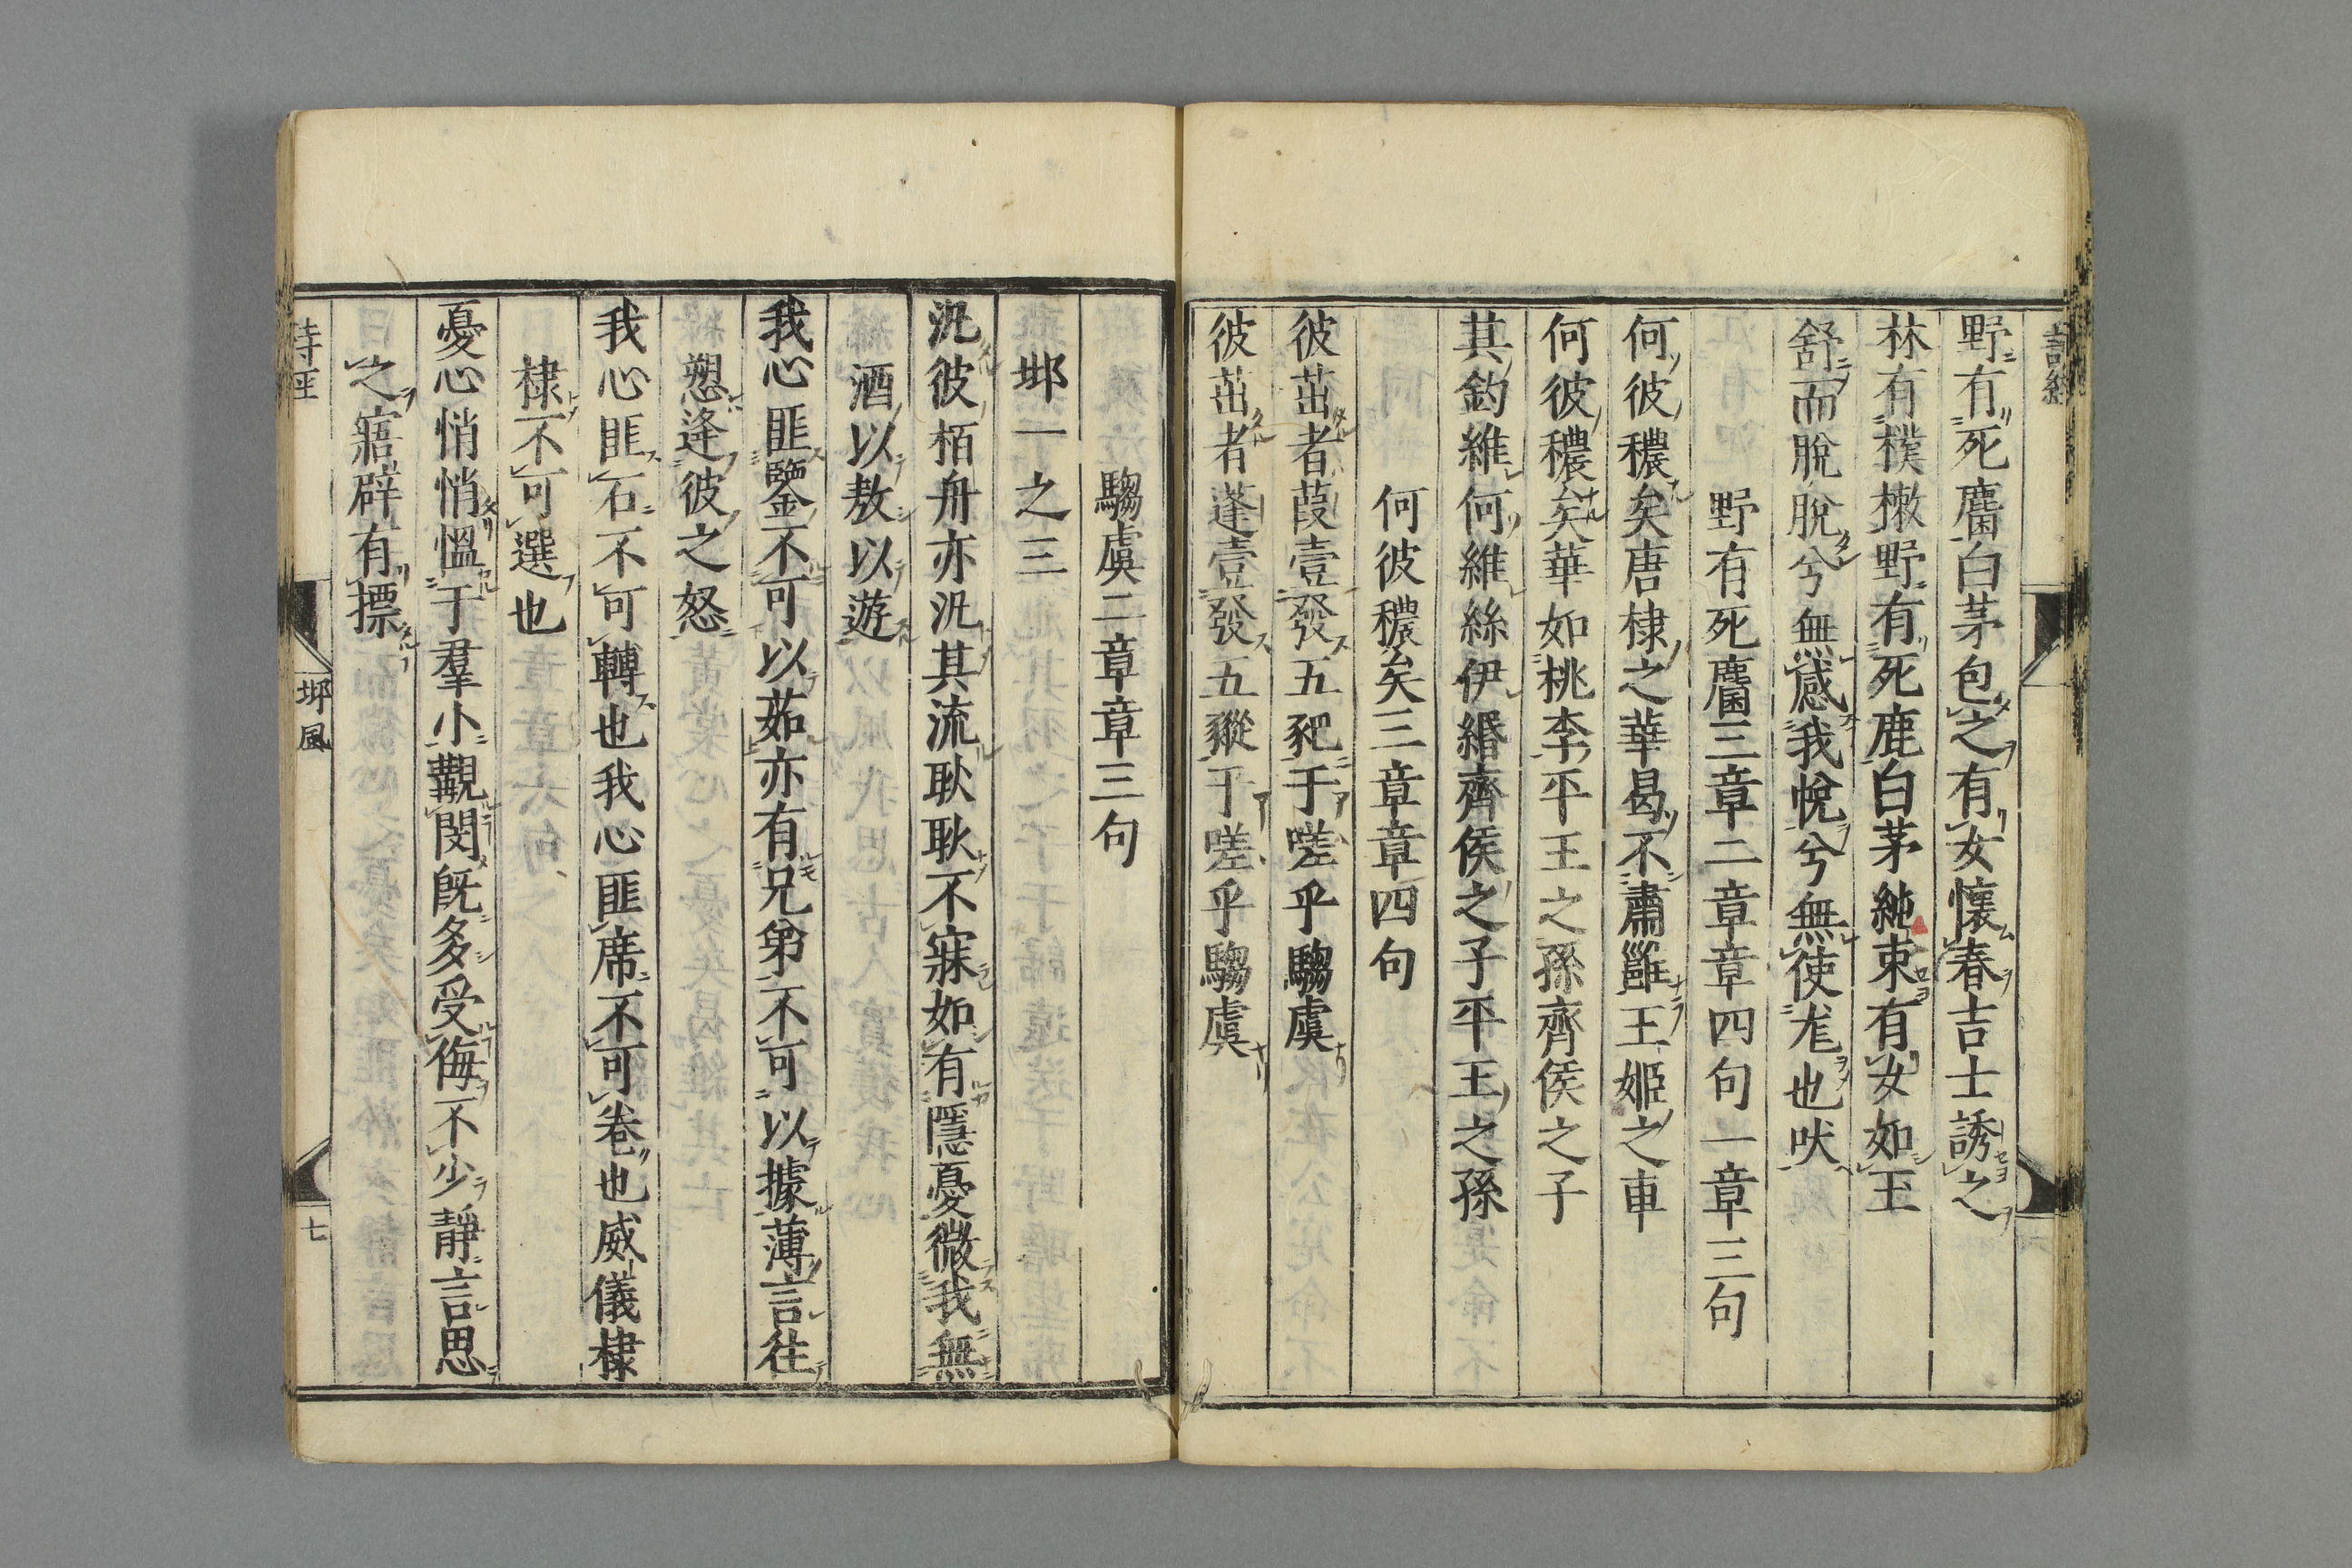 詩經
野有死麕白茅包之有女懷春吉士誘之
林有樸樕野有死鹿白茅純束有女如玉
舒而脫脫兮無感我帨兮無使尨也吠
野有死麕三章二章章四句一章三句
何彼穠矣唐棣之華曷不肅雝王姬之車
何彼穠矣華如桃李平王之孫齊侯之子
其釣維何維絲伊緡齊侯之子平王之孫
何彼穠矣三章章四句
彼茁者葭壹發五豝于嗟乎騶虞
彼茁者蓬壹發五豵于嗟乎騶虞
騶虞二章章三句
邶一之三
汎彼栢舟亦汎其流耿耿不寐如有隱憂微我無
酒以敖以遊
我心匪鑒不可以茹亦有兄弟不可以據薄言往
愬逢彼之怒
我心匪石不可轉也我心匪席不可卷也威儀棣
棣不可選也
憂心悄悄慍于羣小覯閔旣多受侮不少靜言思
之寤辟有摽
詩經
邶風
七